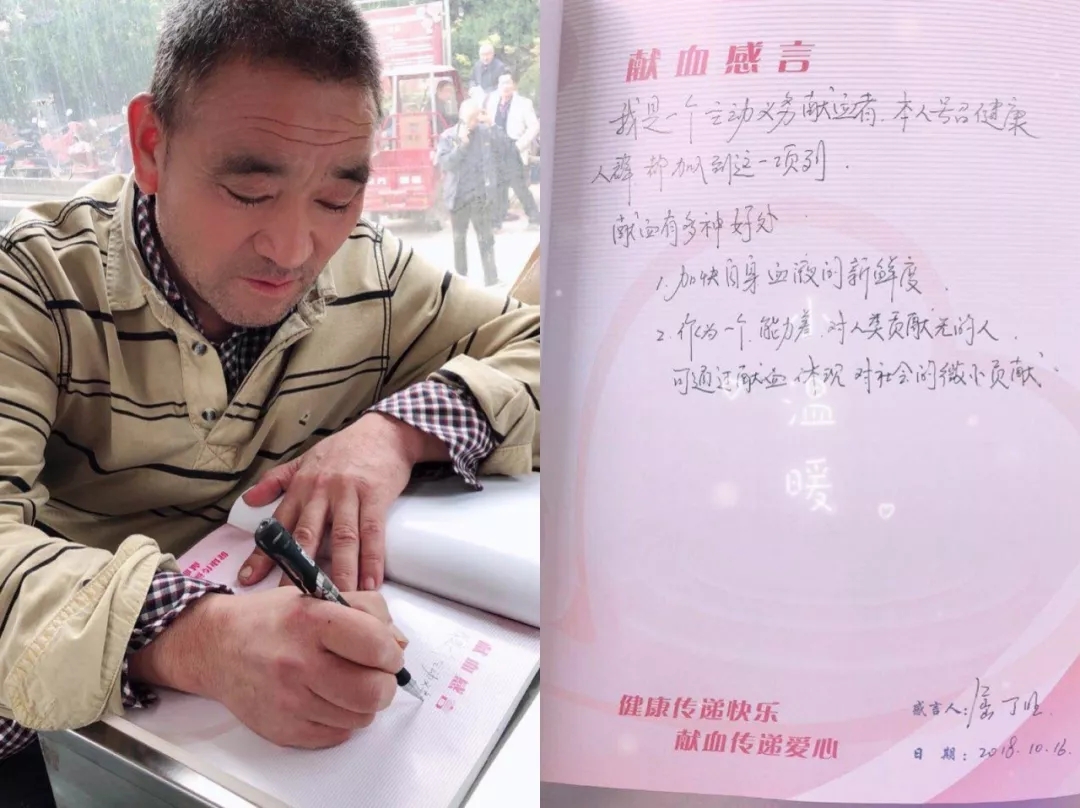 献血感言
献血感言
我是一个主动义务献血者,本人号召健康
人群,都加入到这一项列.
献血有多种好处.
1.加快自身血液的新鲜度.
2.作为一个,能力差,对人类贡献无的人.
可通过献血,体现对社会的微小贡献.
温
暖
健康传递快乐
献血传递爱心
感言人:
丁旺
日期:2018.10.16.